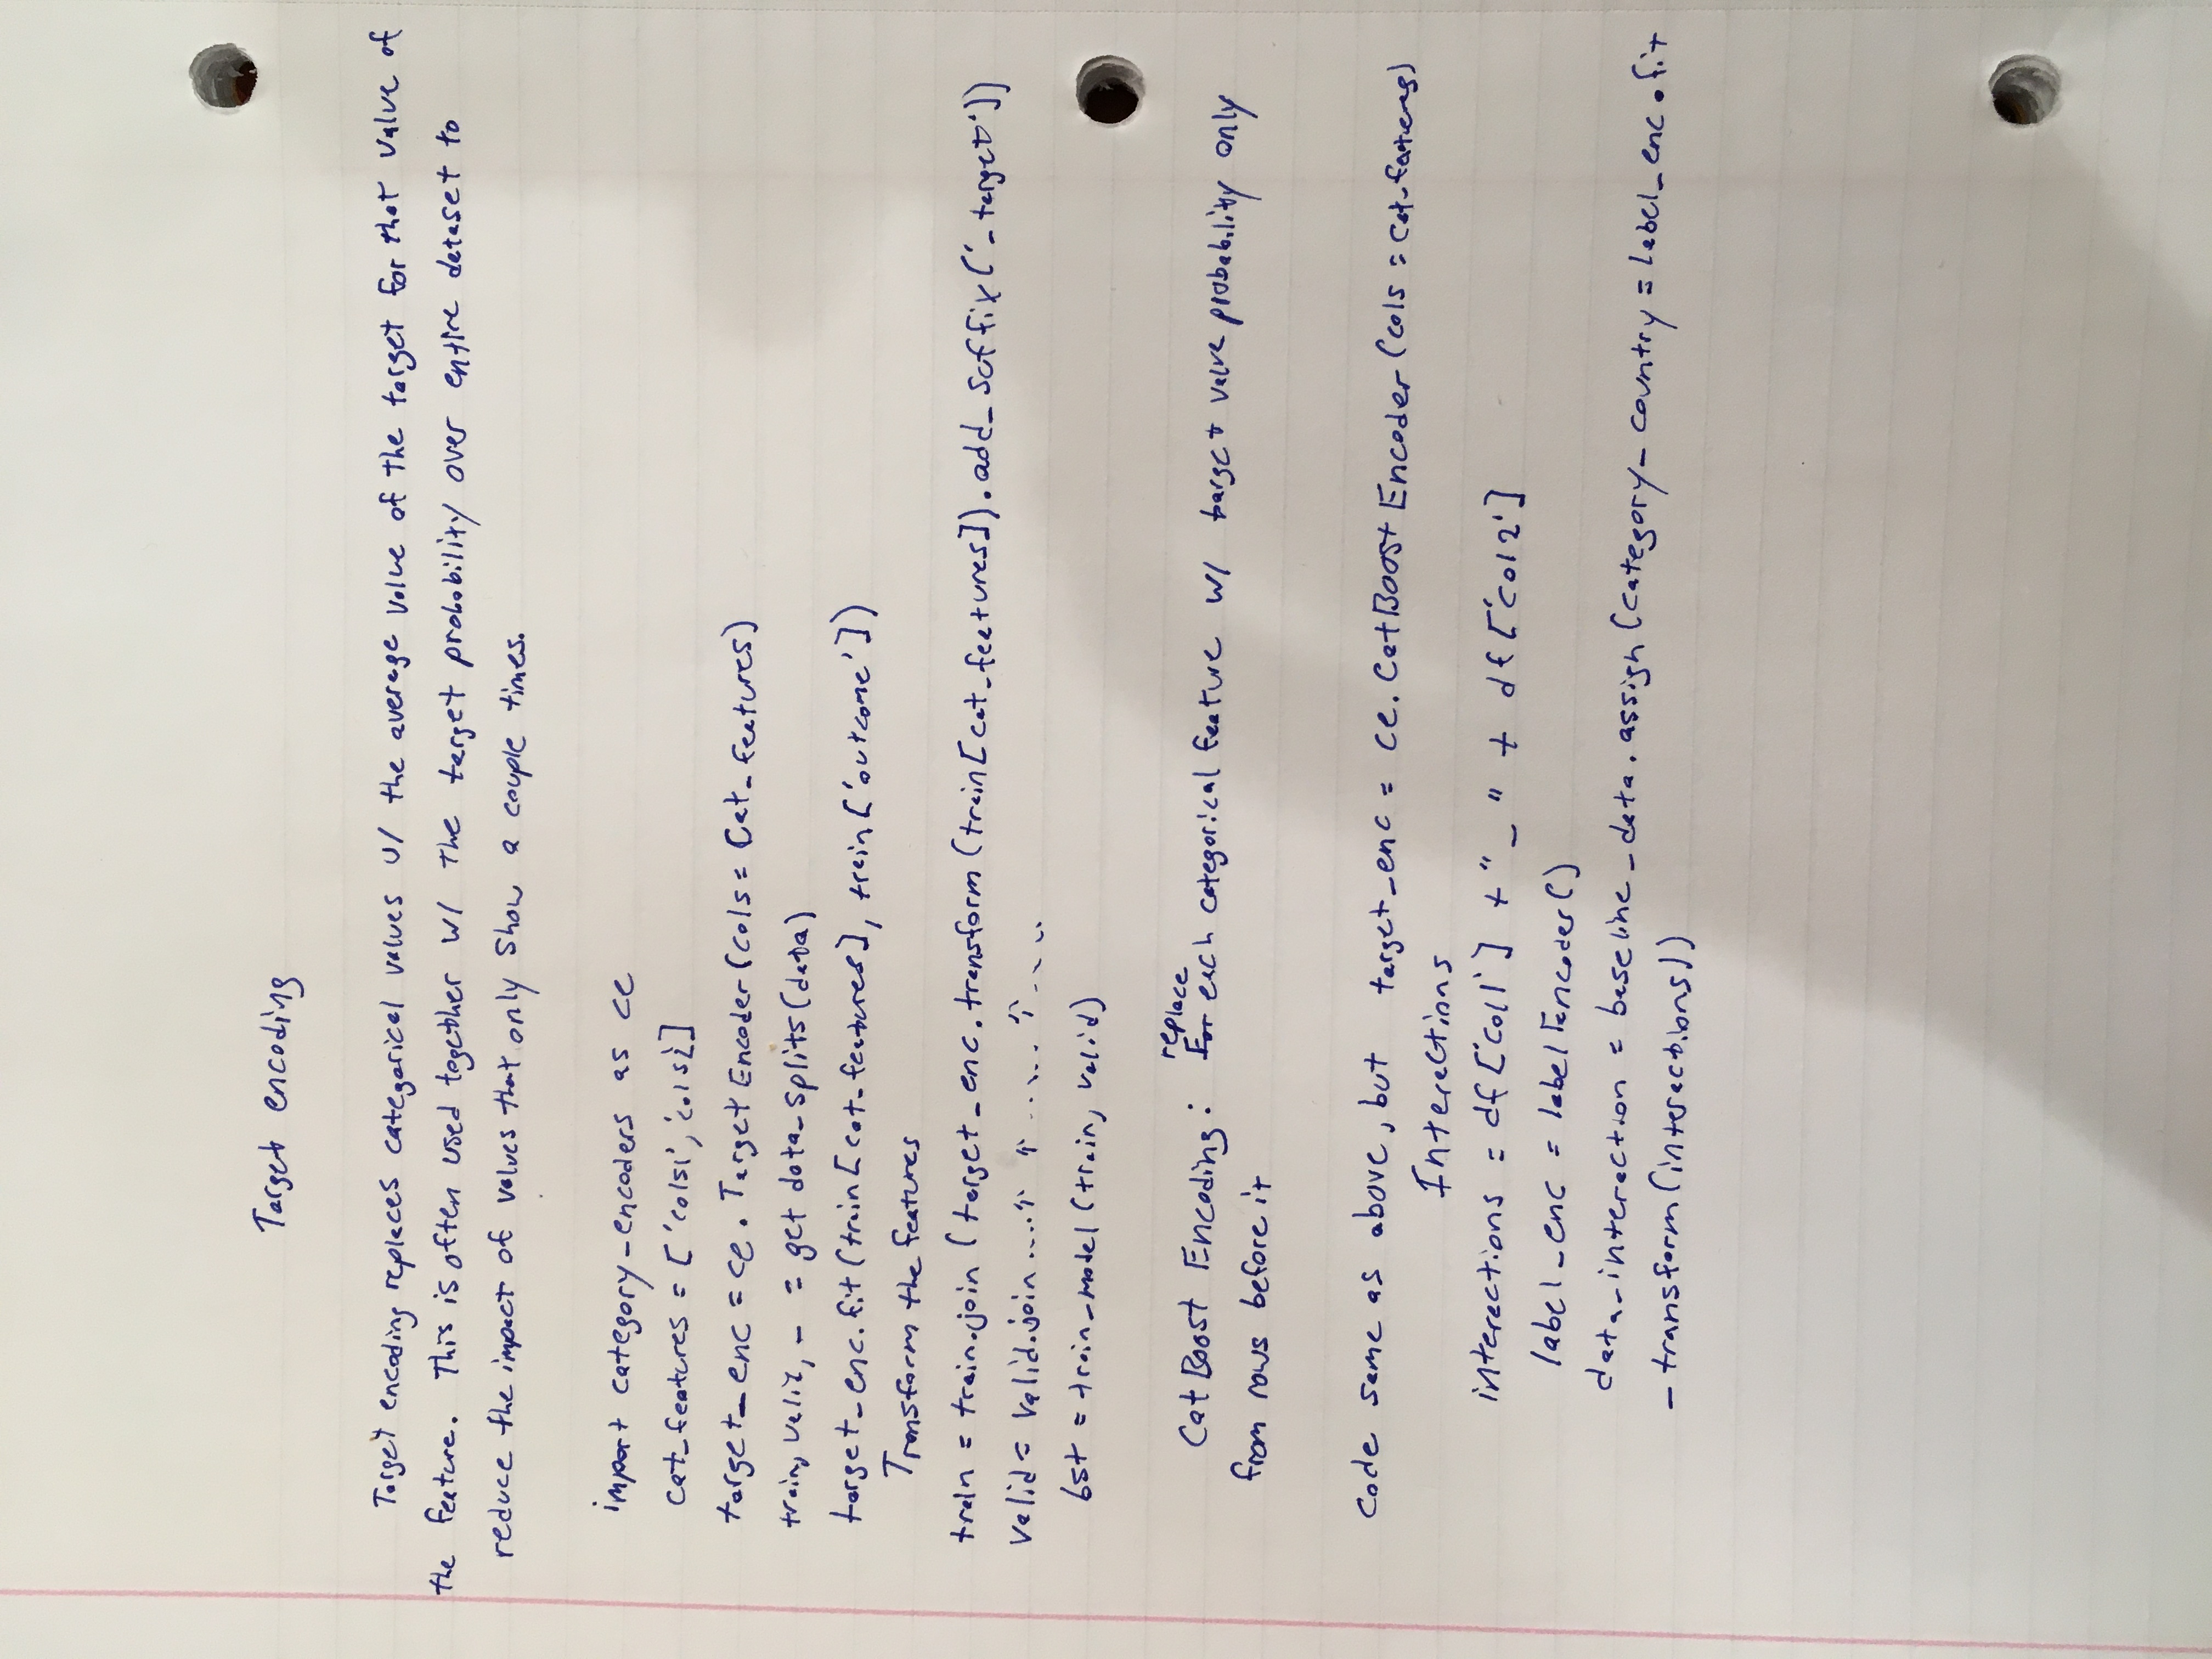 Target encoding
Target encoding replaces categorical values w/ the average value of the target for that value of
the feature. This is often used together w/ the target probability over entire dataset to
reduce the impact of values that only show a couple times.
import category_encoders as ce
cat_features = ['cols1', 'cols2']
target_enc = ce.TargetEncoder(cols = cat_features)
train, valid, _ = get data_splits(data)
target_enc.fit(train[cat_features], train['outcome'])
Transform the features
train = train.join(target_enc.transform(train[cat_features]).add_suffix('_target'))
valid = valid.join ....↑ ↑ ..... ↑ ....
bst = train_model(train, valid)
replace
CatBoost Encoding: For each categorical feature w/ target value probability only
from rows before it
code same as above, but target_enc = ce.CatBoostEncoder(cols = cat_features)
Interactions
interactions = df['col1'] + "_" + df['col2']
label_enc = labelEncoder()
data_interaction = baseline_data.assign(category_country = label_enc.fit
_transform(interactions))